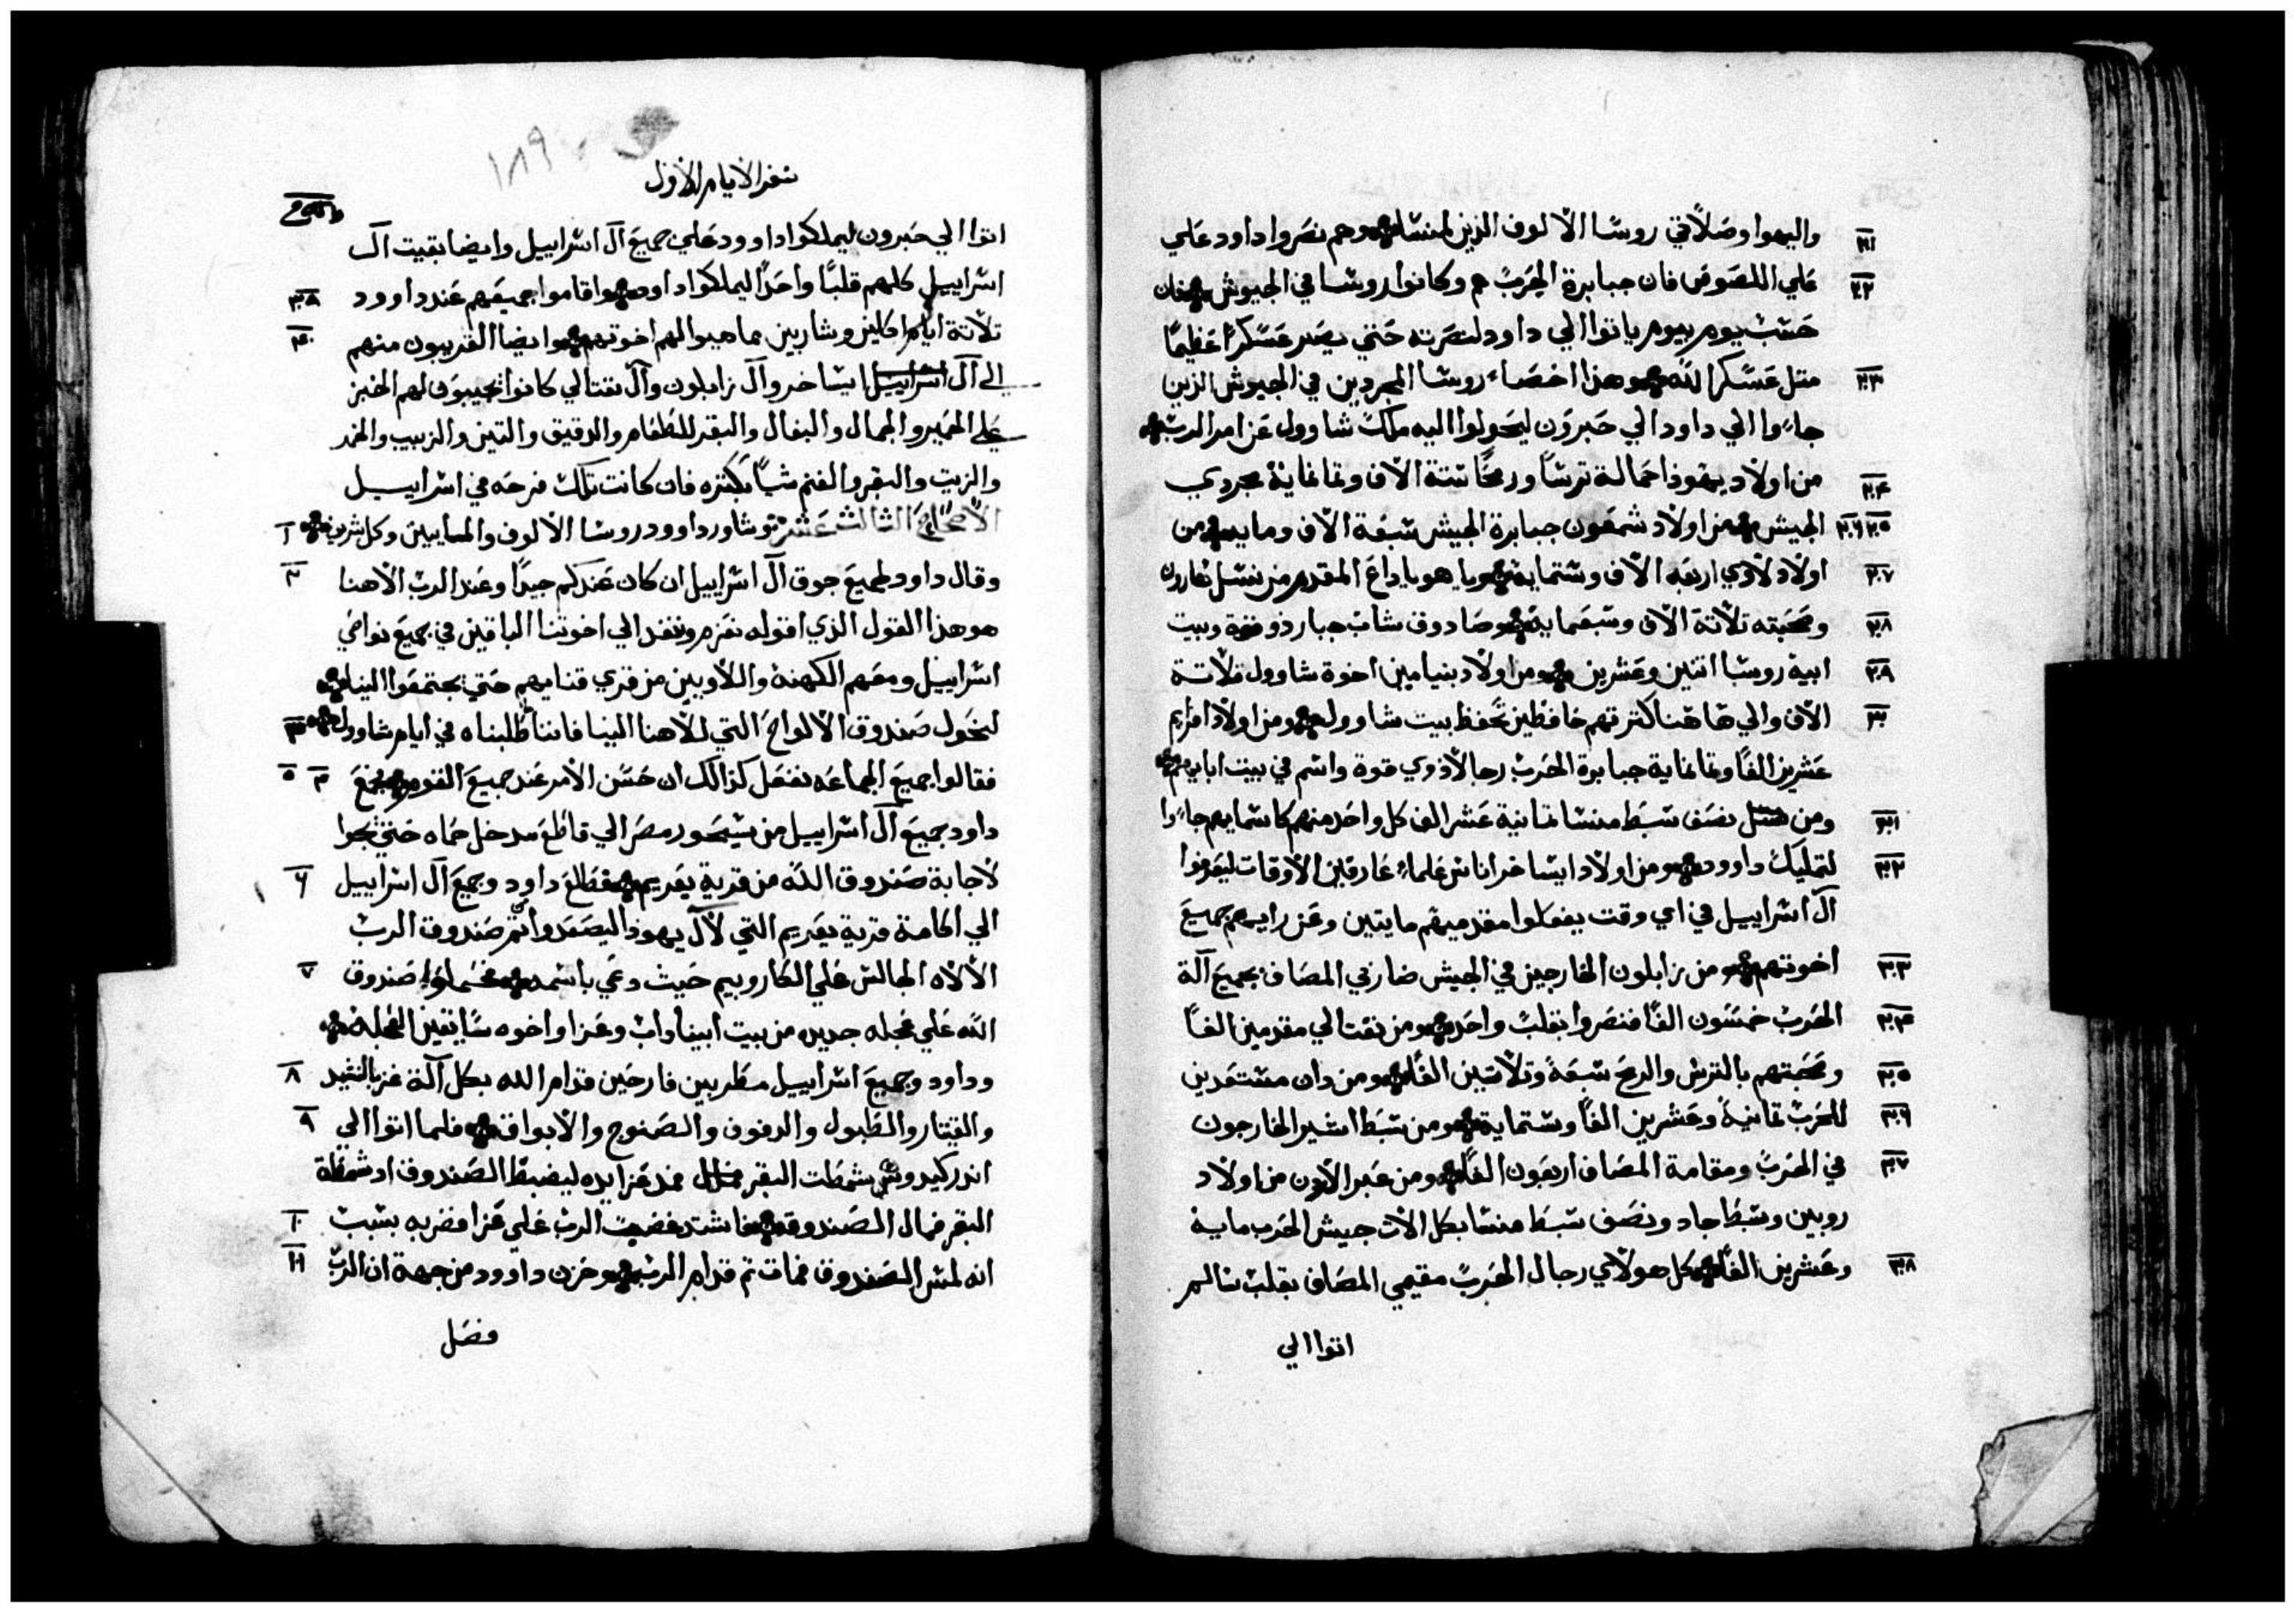 واليهوا وصلاتي روسا الالوف الذين لمنسا وهم نصروا داود علي
علي اللصوص فان جبابرة الحرب هم وكانوا روسا في الجيوش فان
حسب يوم بيوم ياتوا الي داود لنصرته حتي يصير عسكرًا عظيمًا
متل عسكر الله وهذا احصاء روسا المجردين في الجيوش الذين
جاءوا الي داود الي حبرون ليحولوا اليه ملك شاوول عن امر الرب
من اولاد يهوذا حمالة ترسًا ورمحًا ستة الاف وتمانماية مجردي
الجيش من اولاد شمعون جبابرة الجيش سبعة الاف وماية من
اولاد لاوي اربعه الاف وستماية وياهوياداع المقدم من نسل هارون
وصحبته تلاتة الاف وسبعماية وصادوق شاب جبار ذو قوة وبيت
ابية روسا اتنين وعشرين ومن اولاد بنيامين اخوة شاوول تلاتة
الاف والي هاهنا كترتهم حافظين تحفظ بيت شاوول ومن اولاد افرايم
عشرين الفًا وتمانماية جبابرة الحرب رجالا ذوي قوة واسم في بيت ابايهم
ومن نصف سبط منسا تمانية عشر الف كل واحد منهم كاسمايهم جاءوا
لتمليك داوود ومن اولاد ايساخر اناس علماء عارفين الاوقات ليعرفوا
آل اسراييل في اي وقت يفعلوا مقدميهم مايتين وعن رايهم جميع
اخوتهم ومن زابلون الخارجين في الجيش ضاربي المصاف بجميع آلة
الحرب خمسون الفًا فنصروا بقلب واحد ومن نفتالي مقدمين الفًا
وصحبتهم بالترس والرمح سبعة وتلاتين الفًا ومن دان مستعدين
للحرب تمانية وعشرين الفًا وستماية ومن سبط اشير الخارجون
في الحرب ومقامة المصاف اربعون الفًا ومن عبر الاردن من اولاد
روبين وسبط جاد ونصف سبط منسا بكل الات جيش الحرب ماية
وعشرين الفًا كل هولاي رجال الحرب مقيمي المصاف بقلب سالم
اتوا الي
١٨٩
سفر الايام الاول
اتوا الي حبرون ليملكوا داوود علي جميع آل اسراييل وايضا بقيت آل
اسراييل كلهم قلبًا واحدًا ليملكوا داود واقاموا جميعهم عند داوود
تلاتة ايام اكلين وشاربين مما هيوا لهم اخوتهم وايضا القريبون منهم
الي آل اسراييل ايساخر وآل زابلون وآل نفتالي كانوا يجيبون لهم الخبز
علي الحمير والجمال والبغال والبقر للطعام والدقيق والتين والزبيب والخمر
والزيت والبقر والغنم شيًا بكتره فان كانت تلك فرحه في اسراييل
الاصحاح الثالث عشر وشاور داوود روسا الالوف والمايين وكل شريف
وقال داود لجميع جوق آل اسراييل ان كان عندكم جيدًا وعند الرب الاهنا
هو هذا القول الذي اقوله نعزم وننفد الي اخوتنا الباقين في جميع نواحي
اسراييل ومعهم الكهنة واللاويين من قري قنايهم حتي يجتمعوا الينا
لنحول صندوق الالواح التي لالاهنا الينا فاننا طلبناه في ايام شاوول
فقالوا جميع الجماعه نفعل كذالك ان حسن الامر عند جميع القوم فجمع
داود جميع آل اسراييل من سيحور مصر الي قاطع مدخل حماه حتي يجوا
لاجابة صندوق الله من قرية يعريم فطلع داود وجميع آل اسراييل
الي اكامة قرية يعريم التي لآل يهودا ليصعدوا من تم صندوق الرب
الالاه الجالس علي الكاروبيم حيث دعي باسمه فحملوا صندوق
الله علي عجله جديده من بيت ابيناداب وعزا واخوه سايقين العجلة
وداود وجميع اسراييل مطربين فارحين قدام الله بكل آلة عز بالنشيد
والقيتار والطبول والدفوف والصنوج والابواق فلما اتوا الي
اندر كيدون شمطت البقر فمد عزا يده ليضبط الصندوق اد شمطة
البقر فمال الصندوق فاشتد غضب الرب علي عزا فضربه بسبب
انه لمس الصندوق فمات تم قدام الرب وحزن داوود من جهة ان الرب
فصل